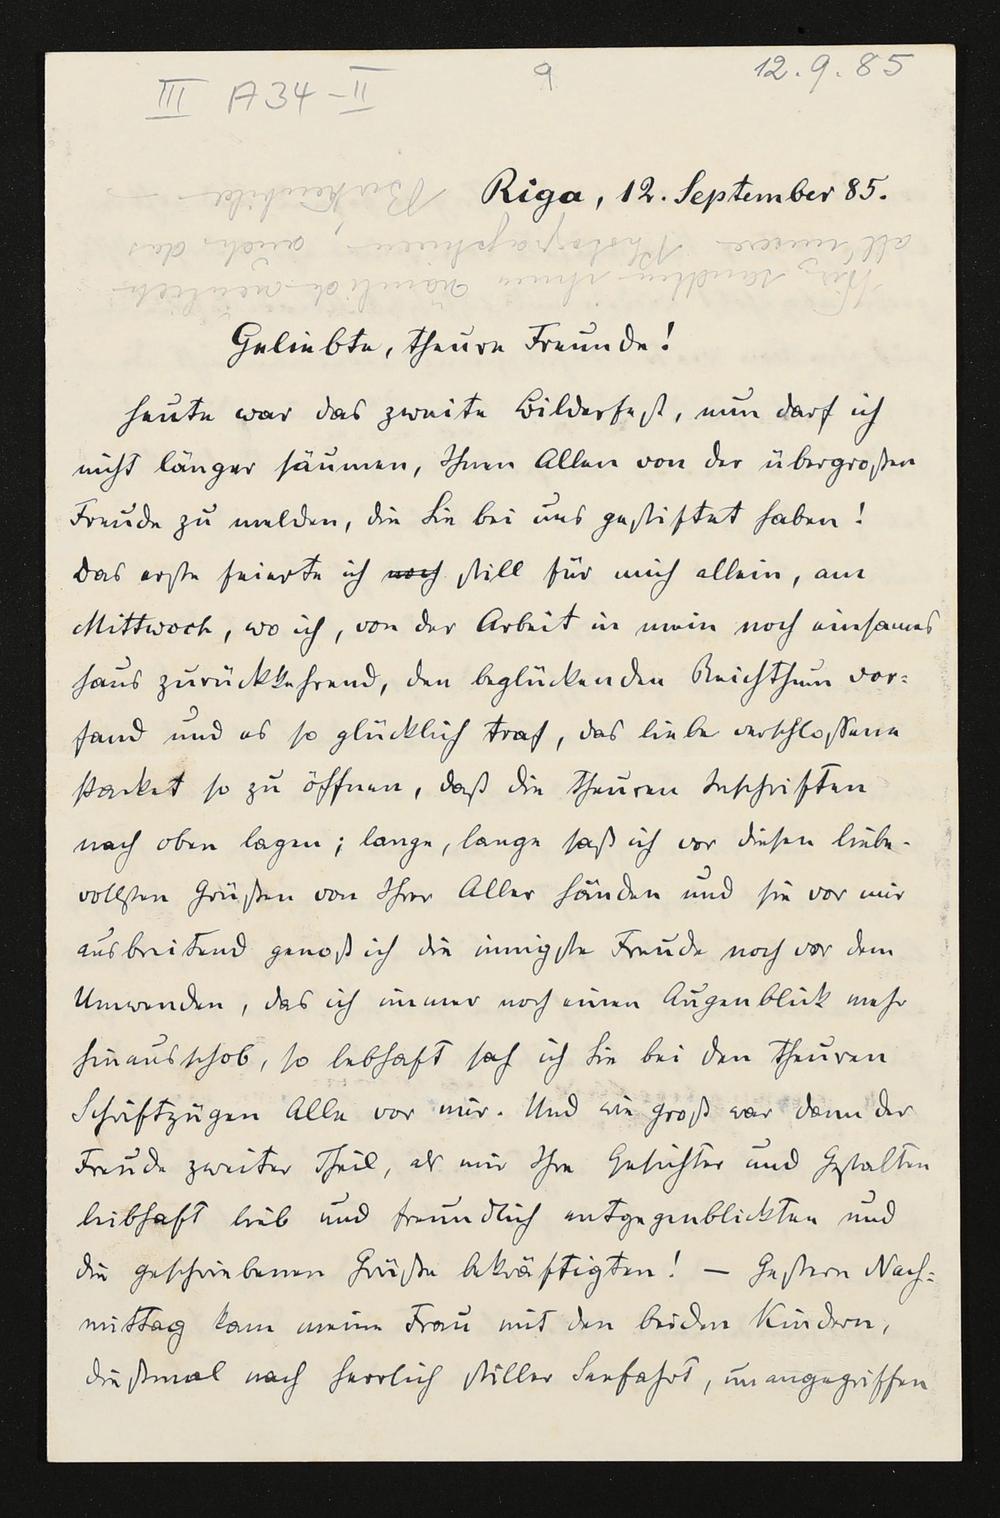 III A34-II
9
12.9.85
Riga, 12. September 85.
Wir sandten Ihnen nämlich neulich
all unsere Photographieen, auch das
Geliebte, theure Freunde!
Heute war das zweite Bilderfest, nun darf ich
nicht länger säumen, Ihnen Allen von der übergroßen
Freude zu melden, die Sie bei uns gestiftet haben!
Das erste feierte ich noch still für mich allein, am
Mittwoch, wo ich, von der Arbeit in mein noch einsames
Haus zurückkehrend, den beglückenden Reichthum vor-
fand und es so glücklich traf, das liebe verschlossene
Packet so zu öffnen, daß die theuren Inschriften
nach oben lagen; lange, lange saß ich vor diesen liebe-
vollsten Grüßen von Ihrer Aller Händen und sie vor mir
ausbreitend genoß ich die innigste Freude noch vor dem
Umwenden, das ich immer noch einen Augenblick mehr
hinausschob, so lebhaft sah ich Sie bei den theuren
Schriftzügen Alle vor mir. Und wie groß war dann der
Freude zweiter Theil, als mir Ihre Gesichter und Gestalten
leibhaft lieb und freundlich entgegenblickten und
die geschriebenen Grüße bekräftigten! — Gestern Nach-
mittag kam meine Frau mit den beiden Kindern,
diesmal nach herrlich stiller Seefahrt, unangegriffen